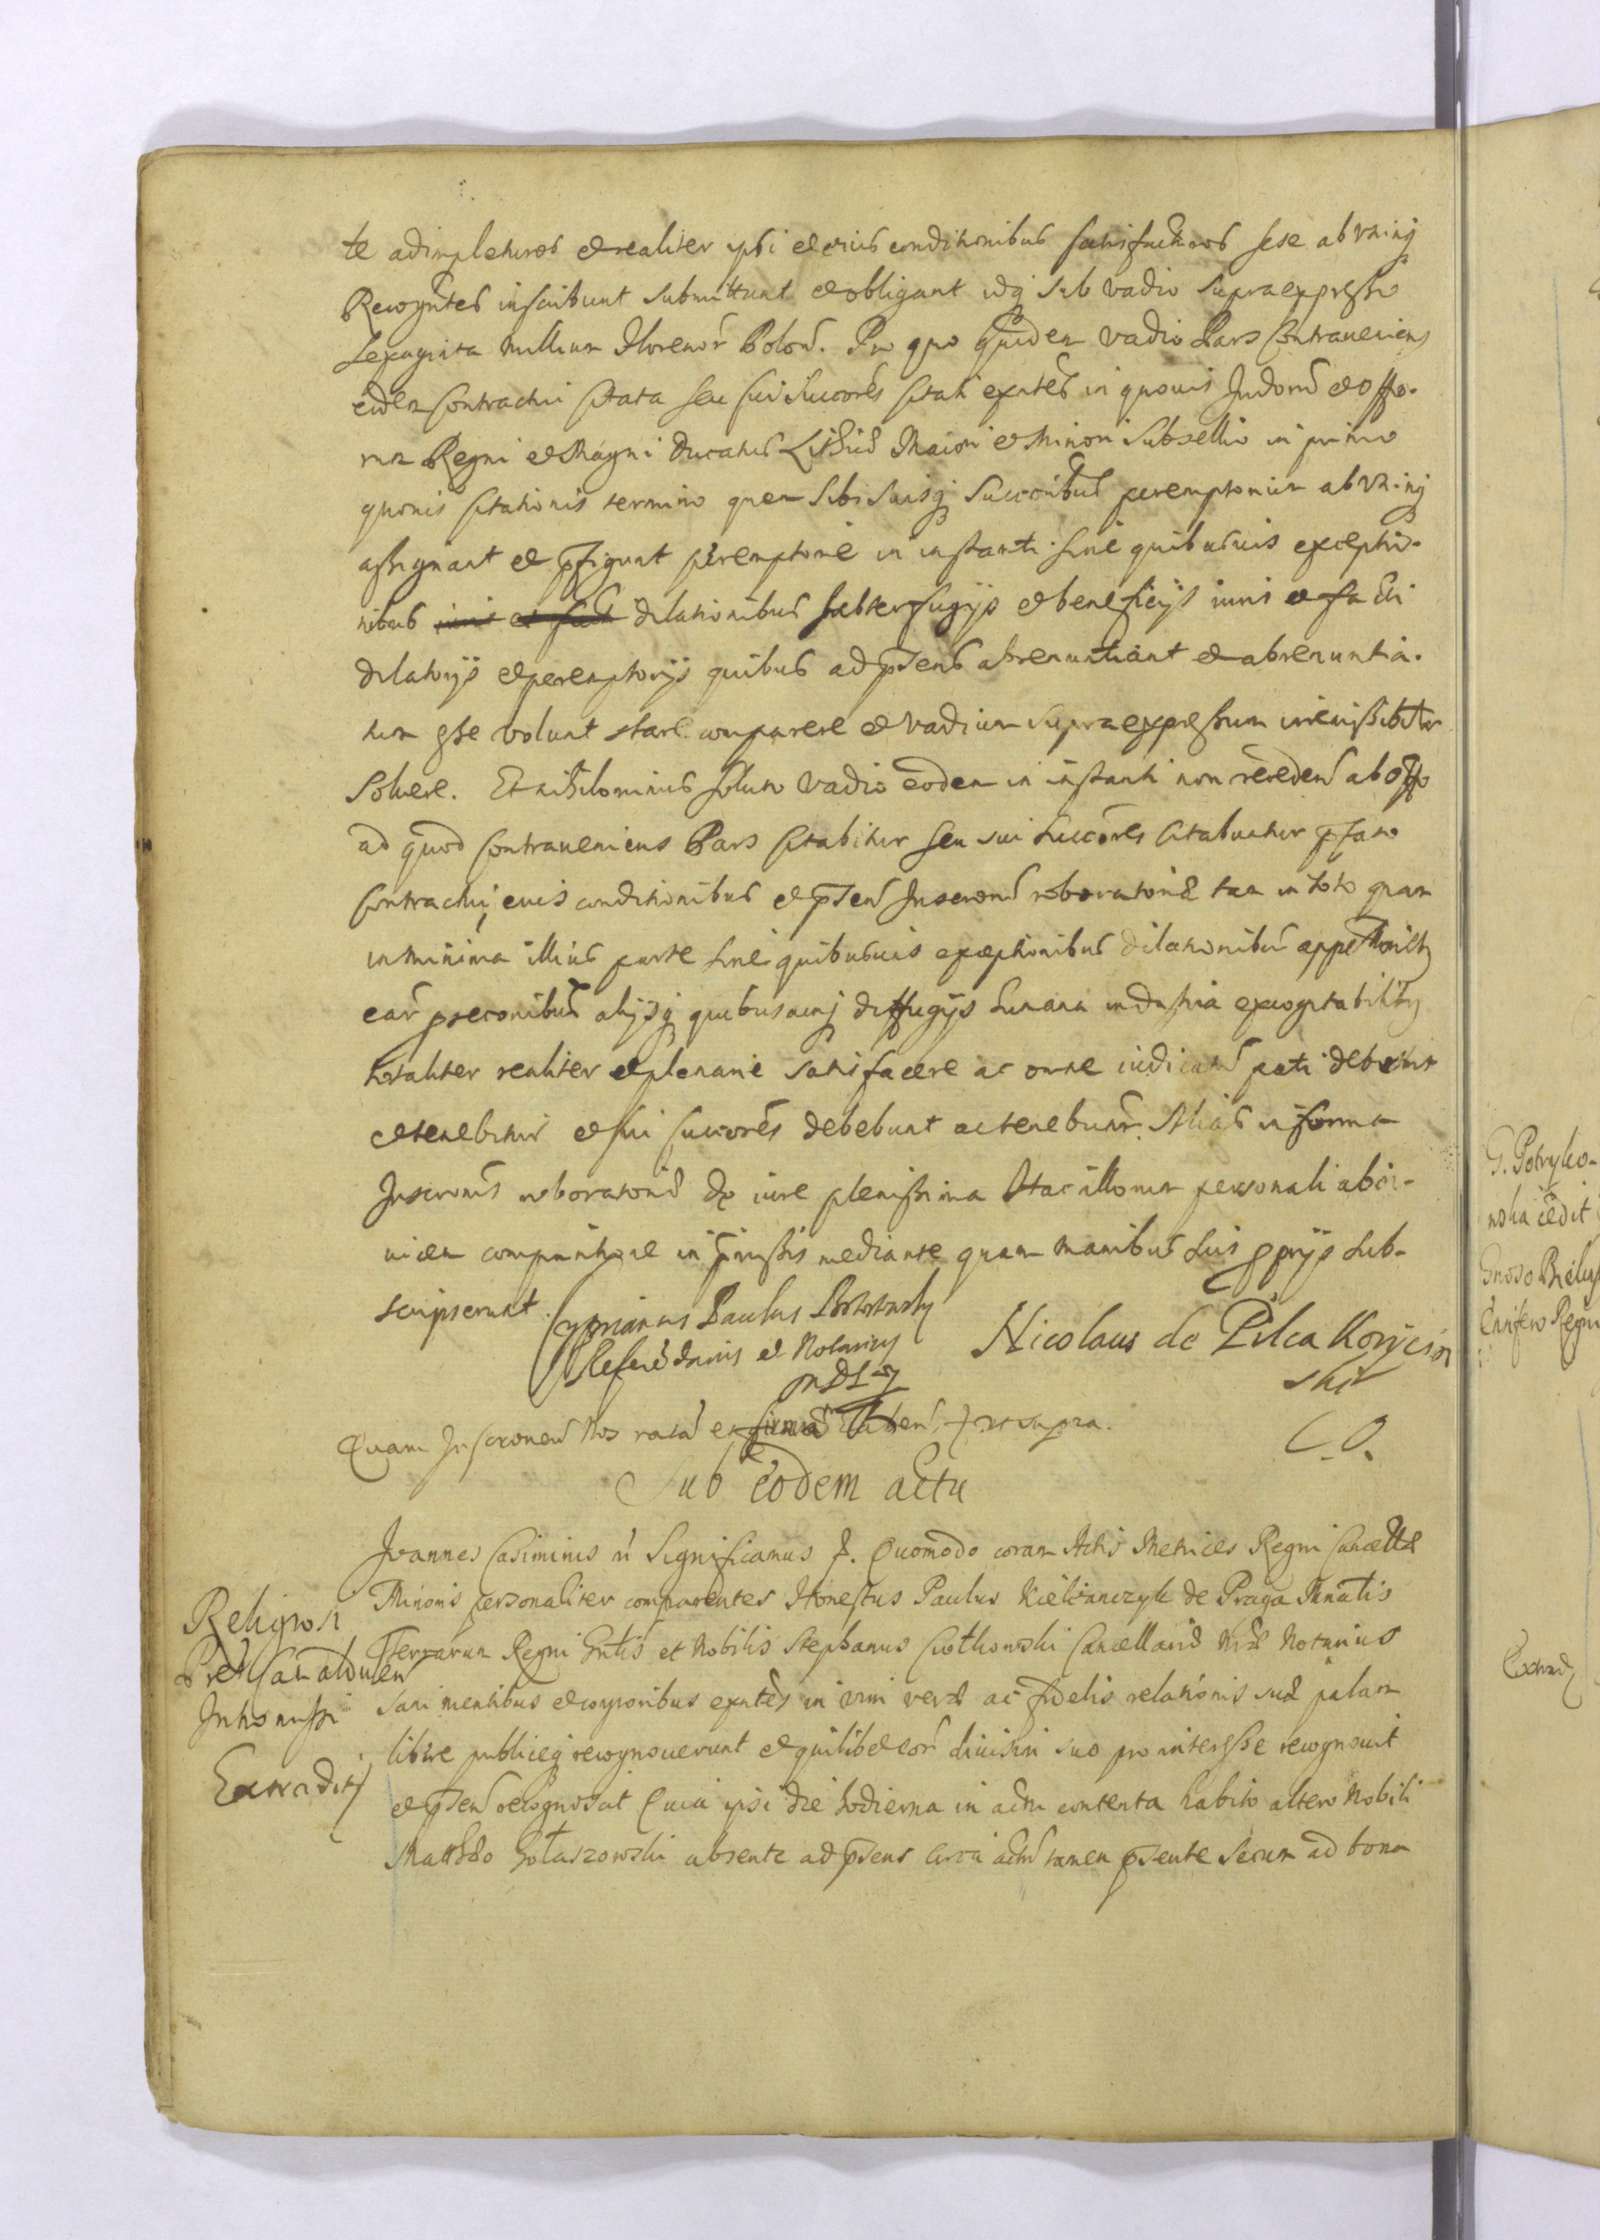 te adimpleturos et realiter ipsi et eius conditionibus satisfacturos sese ab utrinq
Recogntes inscribunt submittunt et obligant idq sub vadio supraexpresso
Sexaginta Millium Florenor Polon. Pro quo quidem vadio Pars Contraveniens
eidem Contractui citata seu sui Succores citati exntes in quovis Judiorum et offo-
rum Regni et Magni Ducatus Lithud Maiori et Minori Subsellio in primo
quovis Citationis termino quem sibi suisq Succoribus peremptorium ab utrinq
assignant et pfigunt peremptorie in instanti sine quibusvis exceptio-
nibus iuris et facti dilationibus subterfugijs et beneficijs iuris et facti
dilatorijs et peremptorijs quibus ad psens abrenuntiant et abrenuntia-
tum esse volunt stare comparere et vadium supraexpressum irremissibiliter
solvere. Et nihilominus soluto vadio eodem in instanti non recedend ab offo
ad quod Contraveniens Pars Citabitur seu sui Succores Citabuntur pfato
Contractui, eius conditionibus et psenti Inscroni roboratoriae tam in toto quam
in minima illius parte sine quibusvis exceptionibus dilationibus appellonibz
ear proseconibus alijsq quibuscunq diffugijs humana industria excogitabilibz
totaliter realiter et plenarie satisfacere ac omne iudicatum pati debebit
et tenebitur et sui succores debebunt ac tenebuntr. Alias in forma
Inscronis roboratoriae de iure plenissima Stac illorum personali abin-
uicem comparitione in pmissis mediante quam manibus suis pprijs sub-
scripserunt. Cyprianus Paulus Brzostowsky
Referendarius et Notarius
MDL
Nicolaus de Pilca Koryciń
ski
C. O.
Quam Inscronem Nos ratam et firmam haben. ut supra.
Sub eodem actu
Joannes Casimirus Significamus Quomodo coram Actis Metrices Regni Cancellae
Minoris personaliter comparentes Honestus Paulus Kielbanczyk de Praga Mnstlis
Terrarum Regni Gnlis et Nobilis Stephanus Ciotkowski Cancellariae Nrae Notarius
Sani mentibus et corporibus exntes in vim verae ac fidelis relationis suae palam
libere publiceq recognoverunt et quilibet eor divisim suo pro interesse recognovit
et psenti recognoscit Quia ipsi die hodierna in actu contenta habito altero Nobili
Matthaeo Gołaszowski absente ad psens circa actum tamen psente secum ad bona
Religiosi
Pres Camaldulen
Intromissi
Extraditz
G. Potryko-
wska cedit
Gnoso Bielus
Ensifero Regni
Extradz